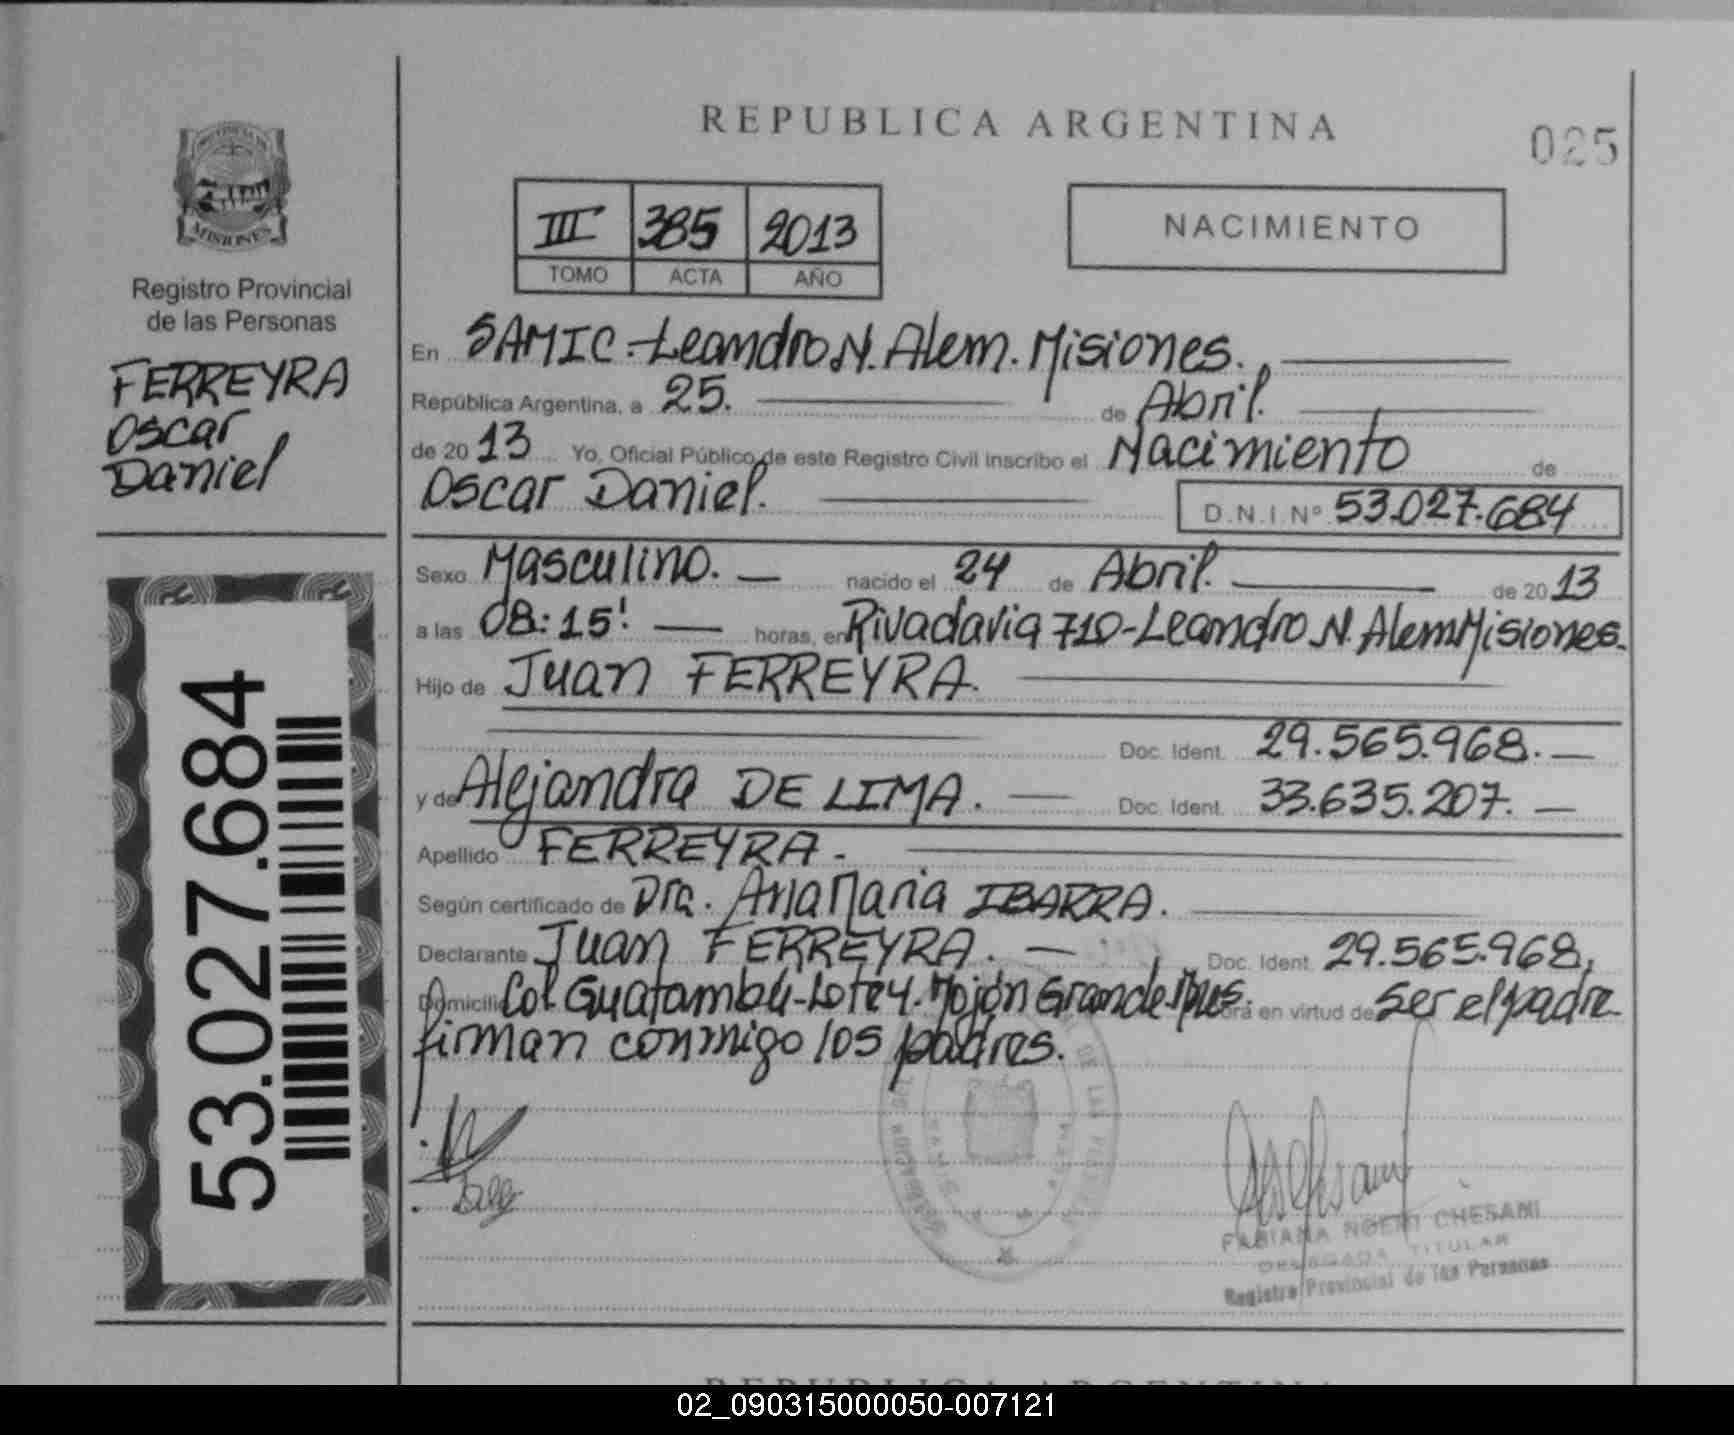 REPUBLICA ARGENTINA
025
PROVINCIA DE
MISIONES
Registro Provincial
de las Personas
FERREYRA
Oscar
Daniel
53.027.684
III 385 2013
TOMO ACTA AÑO
NACIMIENTO
En SAMIC.-Leandro N. Alem. Misiones.
República Argentina, a 25. de Abril.
de 2013 Yo, Oficial Público de este Registro Civil inscribo el Nacimiento de
Oscar Daniel. D.N.I. Nº 53.027.684
Sexo Masculino. nacido el 24 de Abril. de 2013
a las 08:15' horas, en Rivadavia 710-Leandro N. Alem Misiones.
Hijo de Juan FERREYRA.
Doc. Ident. 29.565.968.
y de Alejandra DE LIMA. Doc. Ident. 33.635.207.
Apellido FERREYRA.
Según certificado de Dra. Ana Maria IBARRA.
Declarante Juan FERREYRA. Doc. Ident. 29.565.968.
Domicilio Col. Guatambú-Lote 4. Mojón Grande. Mnes. en virtud de Ser el padre
firman conmigo los padres.
FABIANA NOEMI CHESANI
DELEGADA TITULAR
Registro Provincial de las Personas
REPUBLICA ARGENTINA
02_090315000050-007121